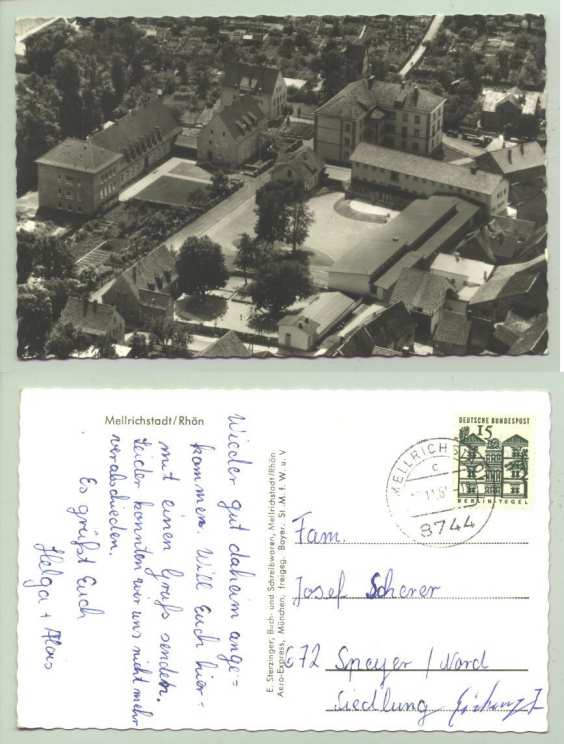 Mellrichstadt/Rhön
Wieder gut daheim ange-
kommen. Will Euch hier-
mit einen Gruß senden.
Leider konnten wir uns nicht mehr
verabschieden.
Es grüßt Euch
Helga + Alois
E. Sterzinger, Buch- und Schreibwaren, Mellrichstadt/Rhön
Aero-Express, München, freigeg. Bayer. St. M. f. W. u. V
DEUTSCHE BUNDESPOST
15
BERLIN-TEGEL
MELLRICHS
c
8744
Fam.
Josef Scherer
672 Speyer / Nord
Siedlung